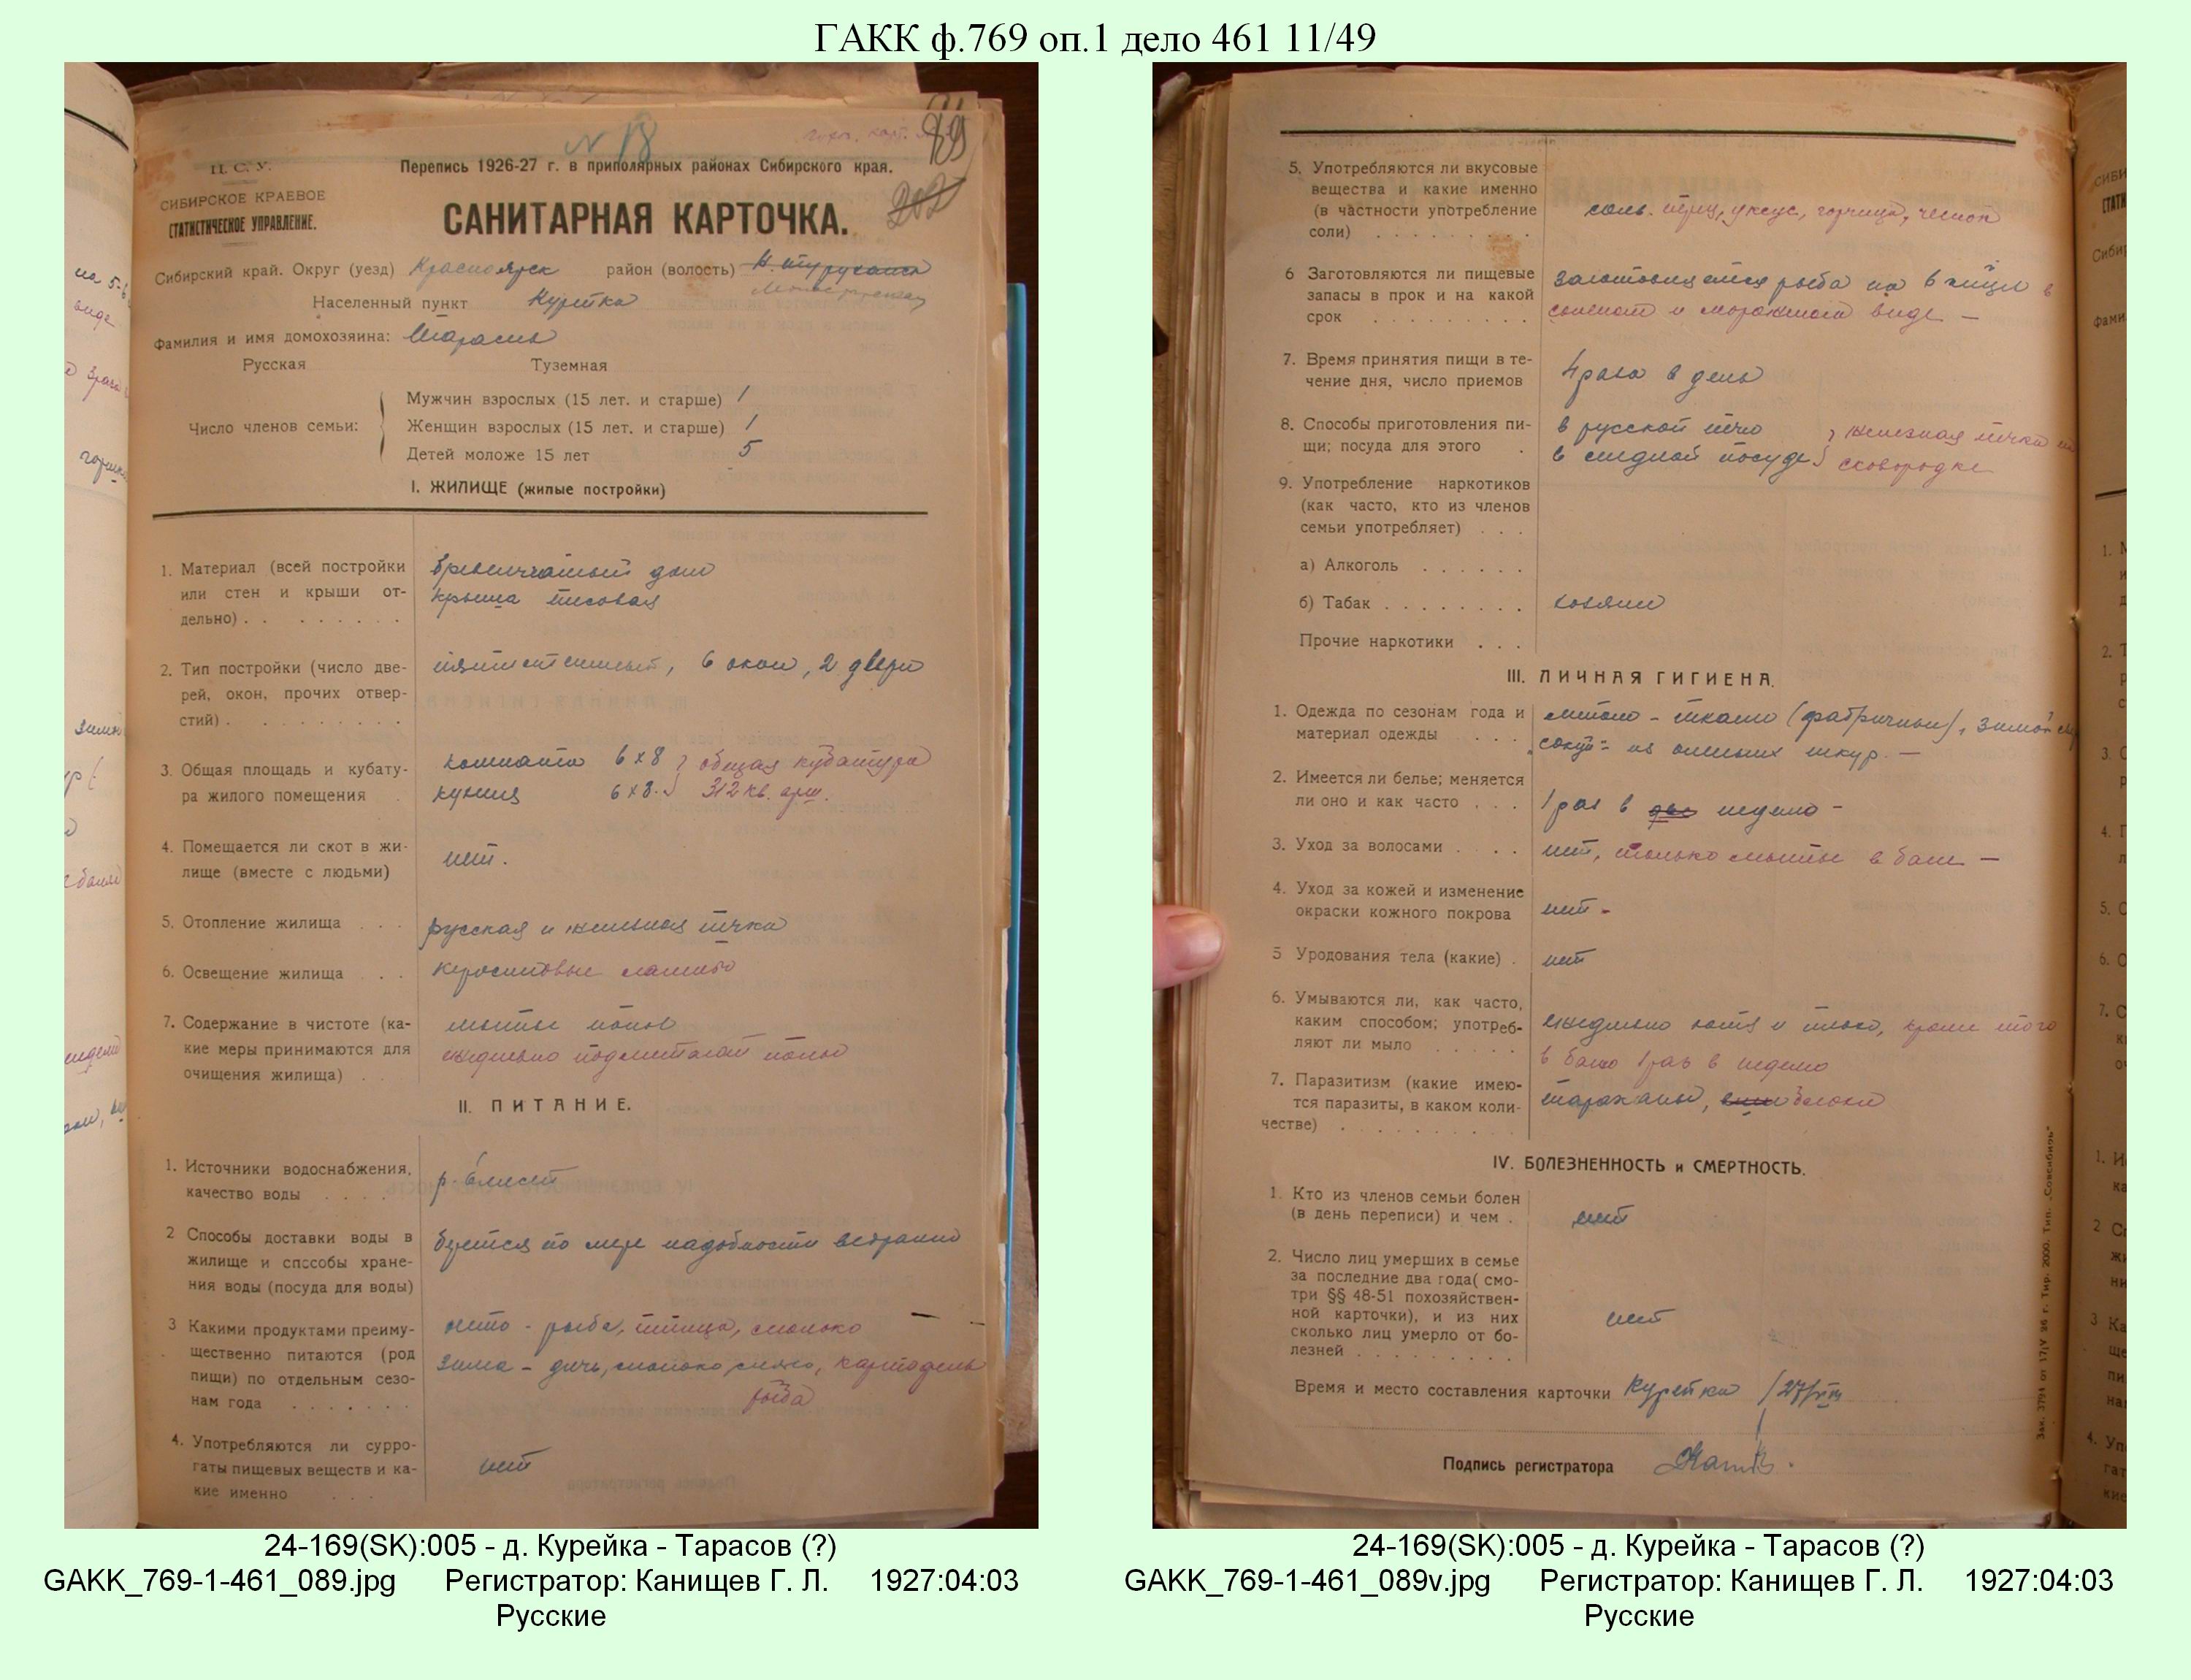 ГАКК ф.769 оп.1 дело 461 11/49
N 18
89
202
Ц. С. У.
СИБИРСКОЕ КРАЕВОЕ
СТАТИСТИЧЕСКОЕ УПРАВЛЕНИЕ.
Перепись 1926-27 г. в приполярных районах Сибирского края.
САНИТАРНАЯ КАРТОЧКА.
Сибирский край. Округ (уезд) Красноярск район (волость)
Населенный пункт Курейка
Фамилия и имя домохозяина: Тарасов
Русская Туземная
Число членов семьи:
Мужчин взрослых (15 лет. и старше) 1
Женщин взрослых (15 лет. и старше) 1
Детей моложе 15 лет 5
I. ЖИЛИЩЕ (жилые постройки)
1. Материал (всей постройки бревенчатый дом
или стен и крыши от- крыша тесовая
дельно) . . . . . . . .
2. Тип постройки (число две- пятистенный, 6 окон, 2 двери
рей, окон, прочих отвер-
стий) . . . . . . . . .
3. Общая площадь и кубату- комната 6 x 8 общая кубатура
ра жилого помещения кухня 6 x 8. 312 кв. арш.
4. Помещается ли скот в жи- нет.
лище (вместе с людьми)
5. Отопление жилища . . . русская и железная печка
6. Освещение жилища . . керосиновые лампы
7. Содержание в чистоте (ка- мытье полов
кие меры принимаются для ежедневно подметают полы
очищения жилища) . .
II. ПИТАНИЕ.
1. Источники водоснабжения, р. Енисей
качество воды . . . .
2 Способы доставки воды в берется по мере надобности ведрами
жилище и способы хране-
ния воды (посуда для воды)
3 Какими продуктами преиму- лето - рыба, птица, молоко
щественно питаются (род зима - дичь, молоко, мясо, картофель
пищи) по отдельным сезо- рыба
нам года . . . . . . .
4. Употребляются ли сурро- нет
гаты пищевых веществ и ка-
кие именно . . .
5. Употребляются ли вкусовые
вещества и какие именно
(в частности употребление соль. перец, уксус, горчица, чеснок
соли) . . . . . . . . .
6 Заготовляются ли пищевые заготовляется рыба на 6 месяц. в
запасы в прок и на какой соленом и мороженом виде -
срок . . . . . . . . .
7. Время принятия пищи в те- 4 раза в день
чение дня, число приемов
8. Способы приготовления пи- в русской печи железная печка на
щи; посуда для этого . в медной посуде сковородке
9. Употребление наркотиков
(как часто, кто из членов
семьи употребляет) . . .
а) Алкоголь . . . . . .
б) Табак . . . . . . . . хозяин
Прочие наркотики . . .
III. ЛИЧНАЯ ГИГИЕНА.
1. Одежда по сезонам года и летом - ткани (фабричные), зимой
материал одежды . . . сокуй из оленьих шкур. -
2. Имеется ли белье; меняется
ли оно и как часто . . . 1 раз в две неделю -
3. Уход за волосами . . . . нет, только мытье в бане -
4. Уход за кожей и изменение
окраски кожного покрова нет -
5 Уродования тела (какие) . нет
6. Умываются ли, как часто,
каким способом; употреб- ежедневно, кроме того
ляют ли мыло . . . . . в баню 1 раз в неделю
7. Паразитизм (какие имею- тараканы, блохи
тся паразиты, в каком коли-
честве) . . . . . . . . .
IV. БОЛЕЗНЕННОСТЬ и СМЕРТНОСТЬ.
1. Кто из членов семьи болен
(в день переписи) и чем . нет
2. Число лиц умерших в семье
за последние два года( смо-
три §§ 48-51 похозяйствен-
ной карточки), и из них нет
сколько лиц умерло от бо-
лезней . . . . . . . . .
Время и место составления карточки Курейка
Подпись регистратора
Зак. 3794 от 17/V 26 г. Тир. 2000. Тип. „Совсибирь"
24-169(SK):005 - д. Курейка - Тарасов (?)
GAKK_769-1-461_089.jpg Регистратор: Канищев Г. Л. 1927:04:03
Русские
24-169(SK):005 - д. Курейка - Тарасов (?)
GAKK_769-1-461_089v.jpg Регистратор: Канищев Г. Л. 1927:04:03
Русские